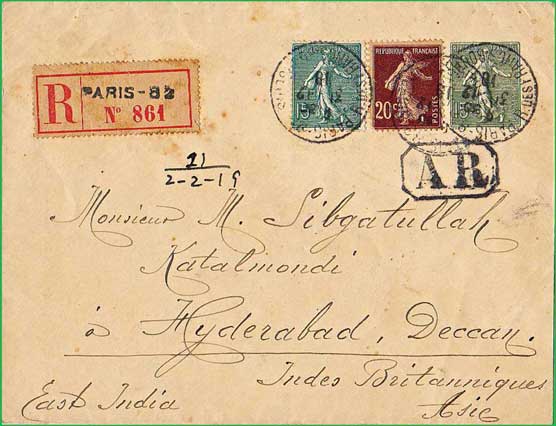 R PARIS-82
Nº 861
REPUBLIQUE FRANÇAISE
20c POSTES
21
2-2-19
AR
Monsieur M. Sibgatullah
Katalmondi
à Hyderabad, Deccan.
Indes Britanniques
East India
Asie